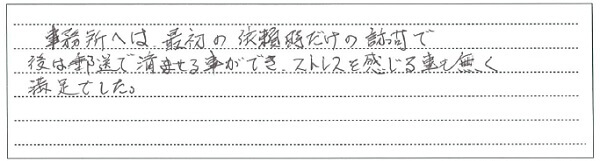 事務所へは、最初の依頼時だけの訪問で
後は郵送で済ませる事ができ、ストレスを感じる事も無く
満足でした。